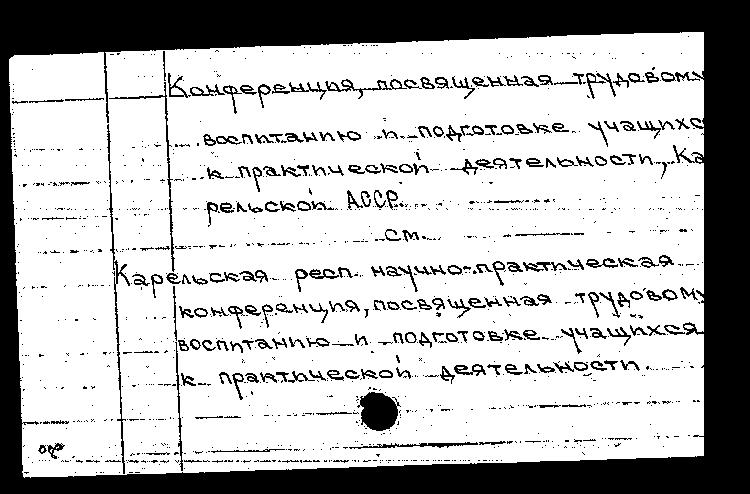 Конференция, посвященная трудовому
воспитанию и подготовке учащихс
к практической деятельности, Ка
рельской АССР.
см.
Карельская респ. научно-практическая
конференция, посвященная трудовому
воспитанию и подготовке учащихся
к практической деятельности.